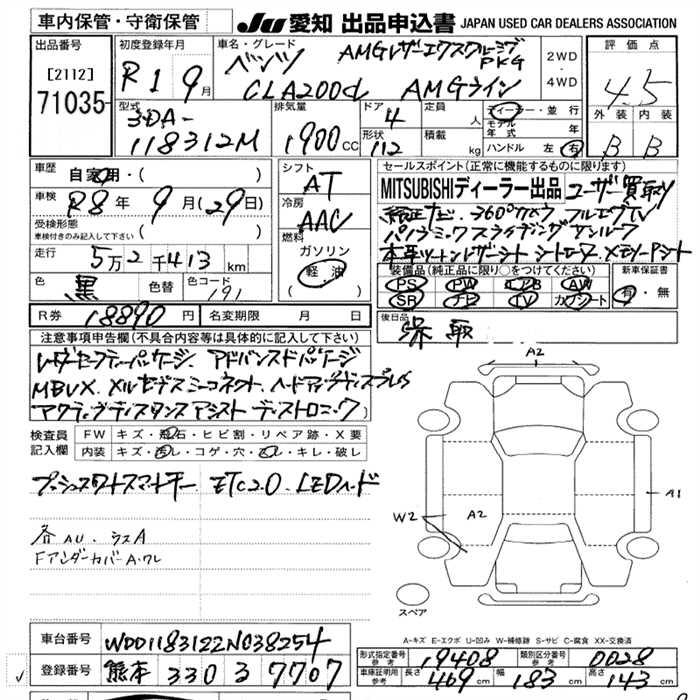 車内保管・守衛保管 JU 愛知 出品申込書 JAPAN USED CAR DEALERS ASSOCIATION
出品番号 [2112] 71035
初度登録年月 R1 9月
車名・グレード ベンツ AMGレザーエクスクルーシブPKG
CLA200d AMGライン
2WD・4WD
評価点 4.5
外装 内装
B B
型式 3DA-118312M
排気量 1900cc
ドア 4
形状 112
定員 人
積載 kg
ディーラー・並行
モデル年式 年
ハンドル 左 右
車歴 自家用・( )
車検 R8年 9月(29日)
受検形態
車検付きのみ記入して下さい ( )
走行 5万2千413km
色 黒 色替 色コード 191
シフト AT
冷房 AAC
燃料 ガソリン
軽・油
( )
セールスポイント(正常に機能するものに限ります)
MITSUBISHIディーラー出品 ユーザー買取り
純正ナビ. 360°カメラ フルセグTV
パノラミックスライディングサンルーフ
本革ツートンレザーシート シートヒーター. メモリーPシート
装備品(純正品に限り○をつけてください)
PS PW エアB AW
SR ナビ TV カワシート
新車保証書
有・無
R券 18890円 名変期限 月 日
後日品 保 取
注意事項申告欄(不具合内容等は具体的に記入して下さい)
レーダーセーフティーパッケージ. アドバンスドパッケージ
MBUX. メルセデスミーコネクト. ヘッドアップディスプレイ
アクティブディスタンスアシスト ディストロニック)
検査員記入欄
FW キズ・飛石・ヒビ割・リペア跡・X要
内装 キズ・汚レ・コゲ・穴・スレ・キレ・破レ
プッシュスタートスマートキー ETC2.0. LEDヘッド
各AU. ラスA
FアンダーカバーA.ワレ
A2
A1
W2 A2
スペア
A-キズ E-エクボ U-凹み W-補修跡 S-サビ C-腐食 XX-交換済
車台番号 WDD1183122N038254
登録番号 熊本 330 る 7707
形式指定番号 参考 19408 類別区分番号 参考 0028
車庫証明用 参考 長さ 469cm 幅 183cm 高さ 143cm